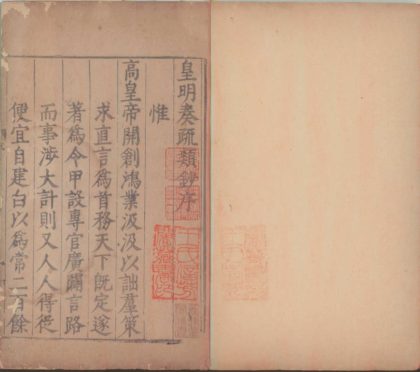 皇明奏疏類鈔序
惟
高皇帝開創鴻業汲汲以詘羣策
求直言爲首務天下旣定遂
著爲令甲設專官廣闢言路
而事涉大計則又人人得從
便宜自建白以爲常二百餘